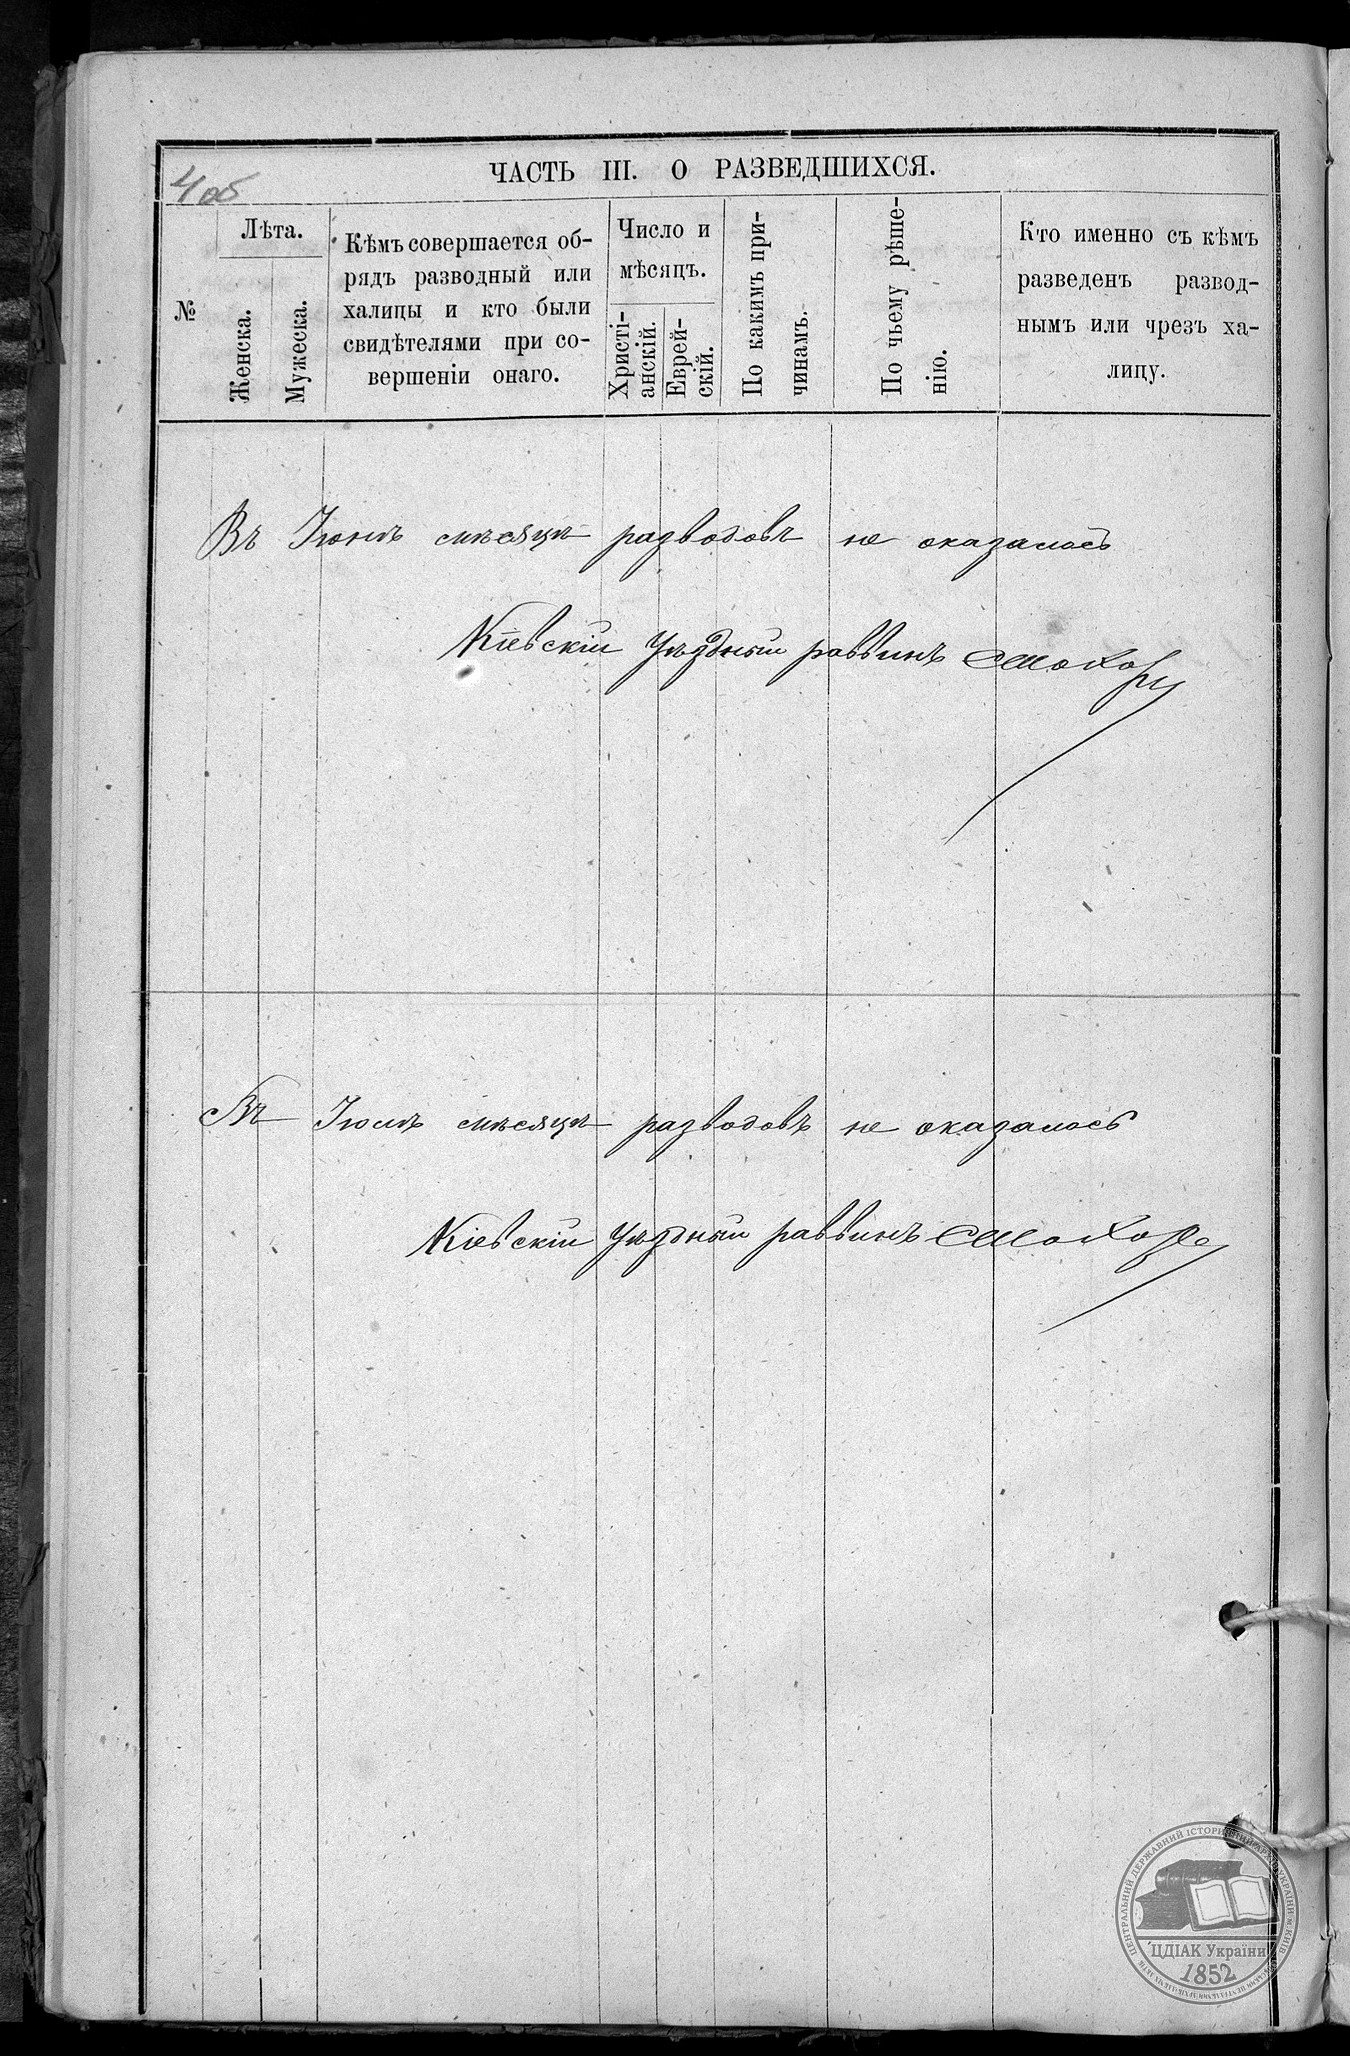 4 об
ЧАСТЬ III. О РАЗВЕДШИХСЯ.
№
Лѣта.
Женска.
Мужеска.
Кѣмъ совершается об-
рядъ разводный или
халицы и кто были
свидѣтелями при со-
вершеніи онаго.
Число и
мѣсяцъ.
Христі-
анскій.
Еврей-
скій.
По какимъ при-
чинамъ.
По чьему рѣше-
нію.
Кто именно съ кѣмъ
разведенъ развод-
нымъ или чрезъ ха-
лицу.
Въ Іюнѣ мѣсяцѣ разводовъ не оказалось
Кіевскій Уѣздный раввинъ
Въ Іюлѣ мѣсяцѣ разводовъ не оказалось
Кіевскій Уѣздный раввинъ
ЦЕНТРАЛЬНИЙ ДЕРЖАВНИЙ ІСТОРИЧНИЙ АРХІВ УКРАЇНИ м. КИЇВ
ЦДІАК України
1852